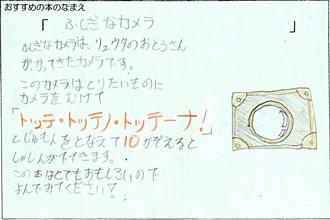 おすすめの本のなまえ
「 ふしぎなカメラ 」
ふしぎなカメラは、リュウタのおとうさん
がかってきたカメラです。
このカメラはとりたいものに
カメラをむけて
「トッテ・トッテノ・トッテーナ!」
とじゅもんをとなえて10かぞえると
しゃしんがでてきます。
この本はとてもおもしろいので
よんでみてください!